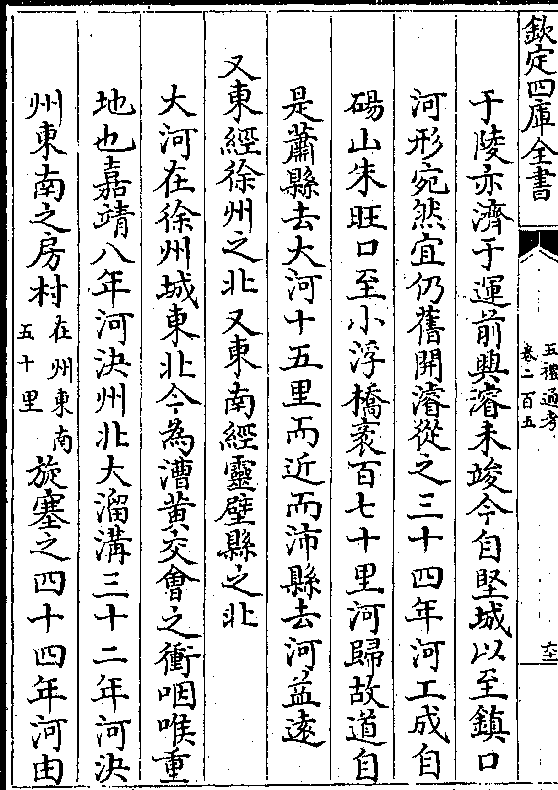 欽定四庫全書
五禮通考
卷二百五
于陵亦濟于運前興濬未竣今自堅城以至鎮口
河形宛然宜仍舊開濬從之三十四年河工成自
碭山朱旺口至小浮橋袤百七十里河歸故道自
是蕭縣去大河十五里而近而沛縣去河益遠
又東經徐州之北又東南經靈壁縣之北
大河在徐州城東北今為漕黄交會之衝咽喉重
地也嘉靖八年河決州北大溜溝三十二年河決
州東南之房村在州東南五十里旋塞之四十四年河由